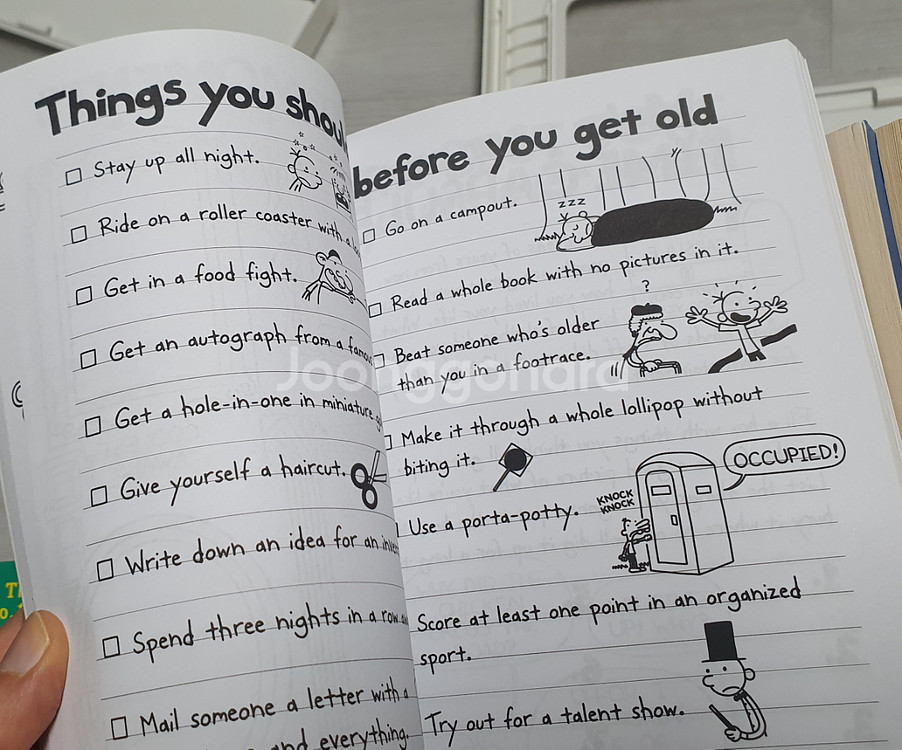 Things you shou
Stay up all night.
Ride on a roller coaster with a
Get in a food fight.
Get an autograph from a
Get a hole-in-one in miniature
Give yourself a haircut.
Write down an idea for an
Spend three nights in a row
Mail someone a letter with a
and everything.
before you get old
Go on a campout.
zzz
Read a whole book with no pictures in it.
?
Beat someone who's older
than you in a footrace.
Make it through a whole lollipop without
biting it.
OCCUPIED!
KNOCK
KNOCK
Use a porta-potty.
Score at least one point in an organized
sport.
Try out for a talent show.
Joonggonara